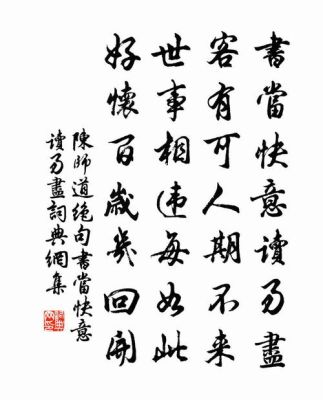 書當快意讀易盡
客有可人期不来
世事相违每如此
好懷百歲幾回開
陳師道绝句書當快意
讀易盡詞典網集